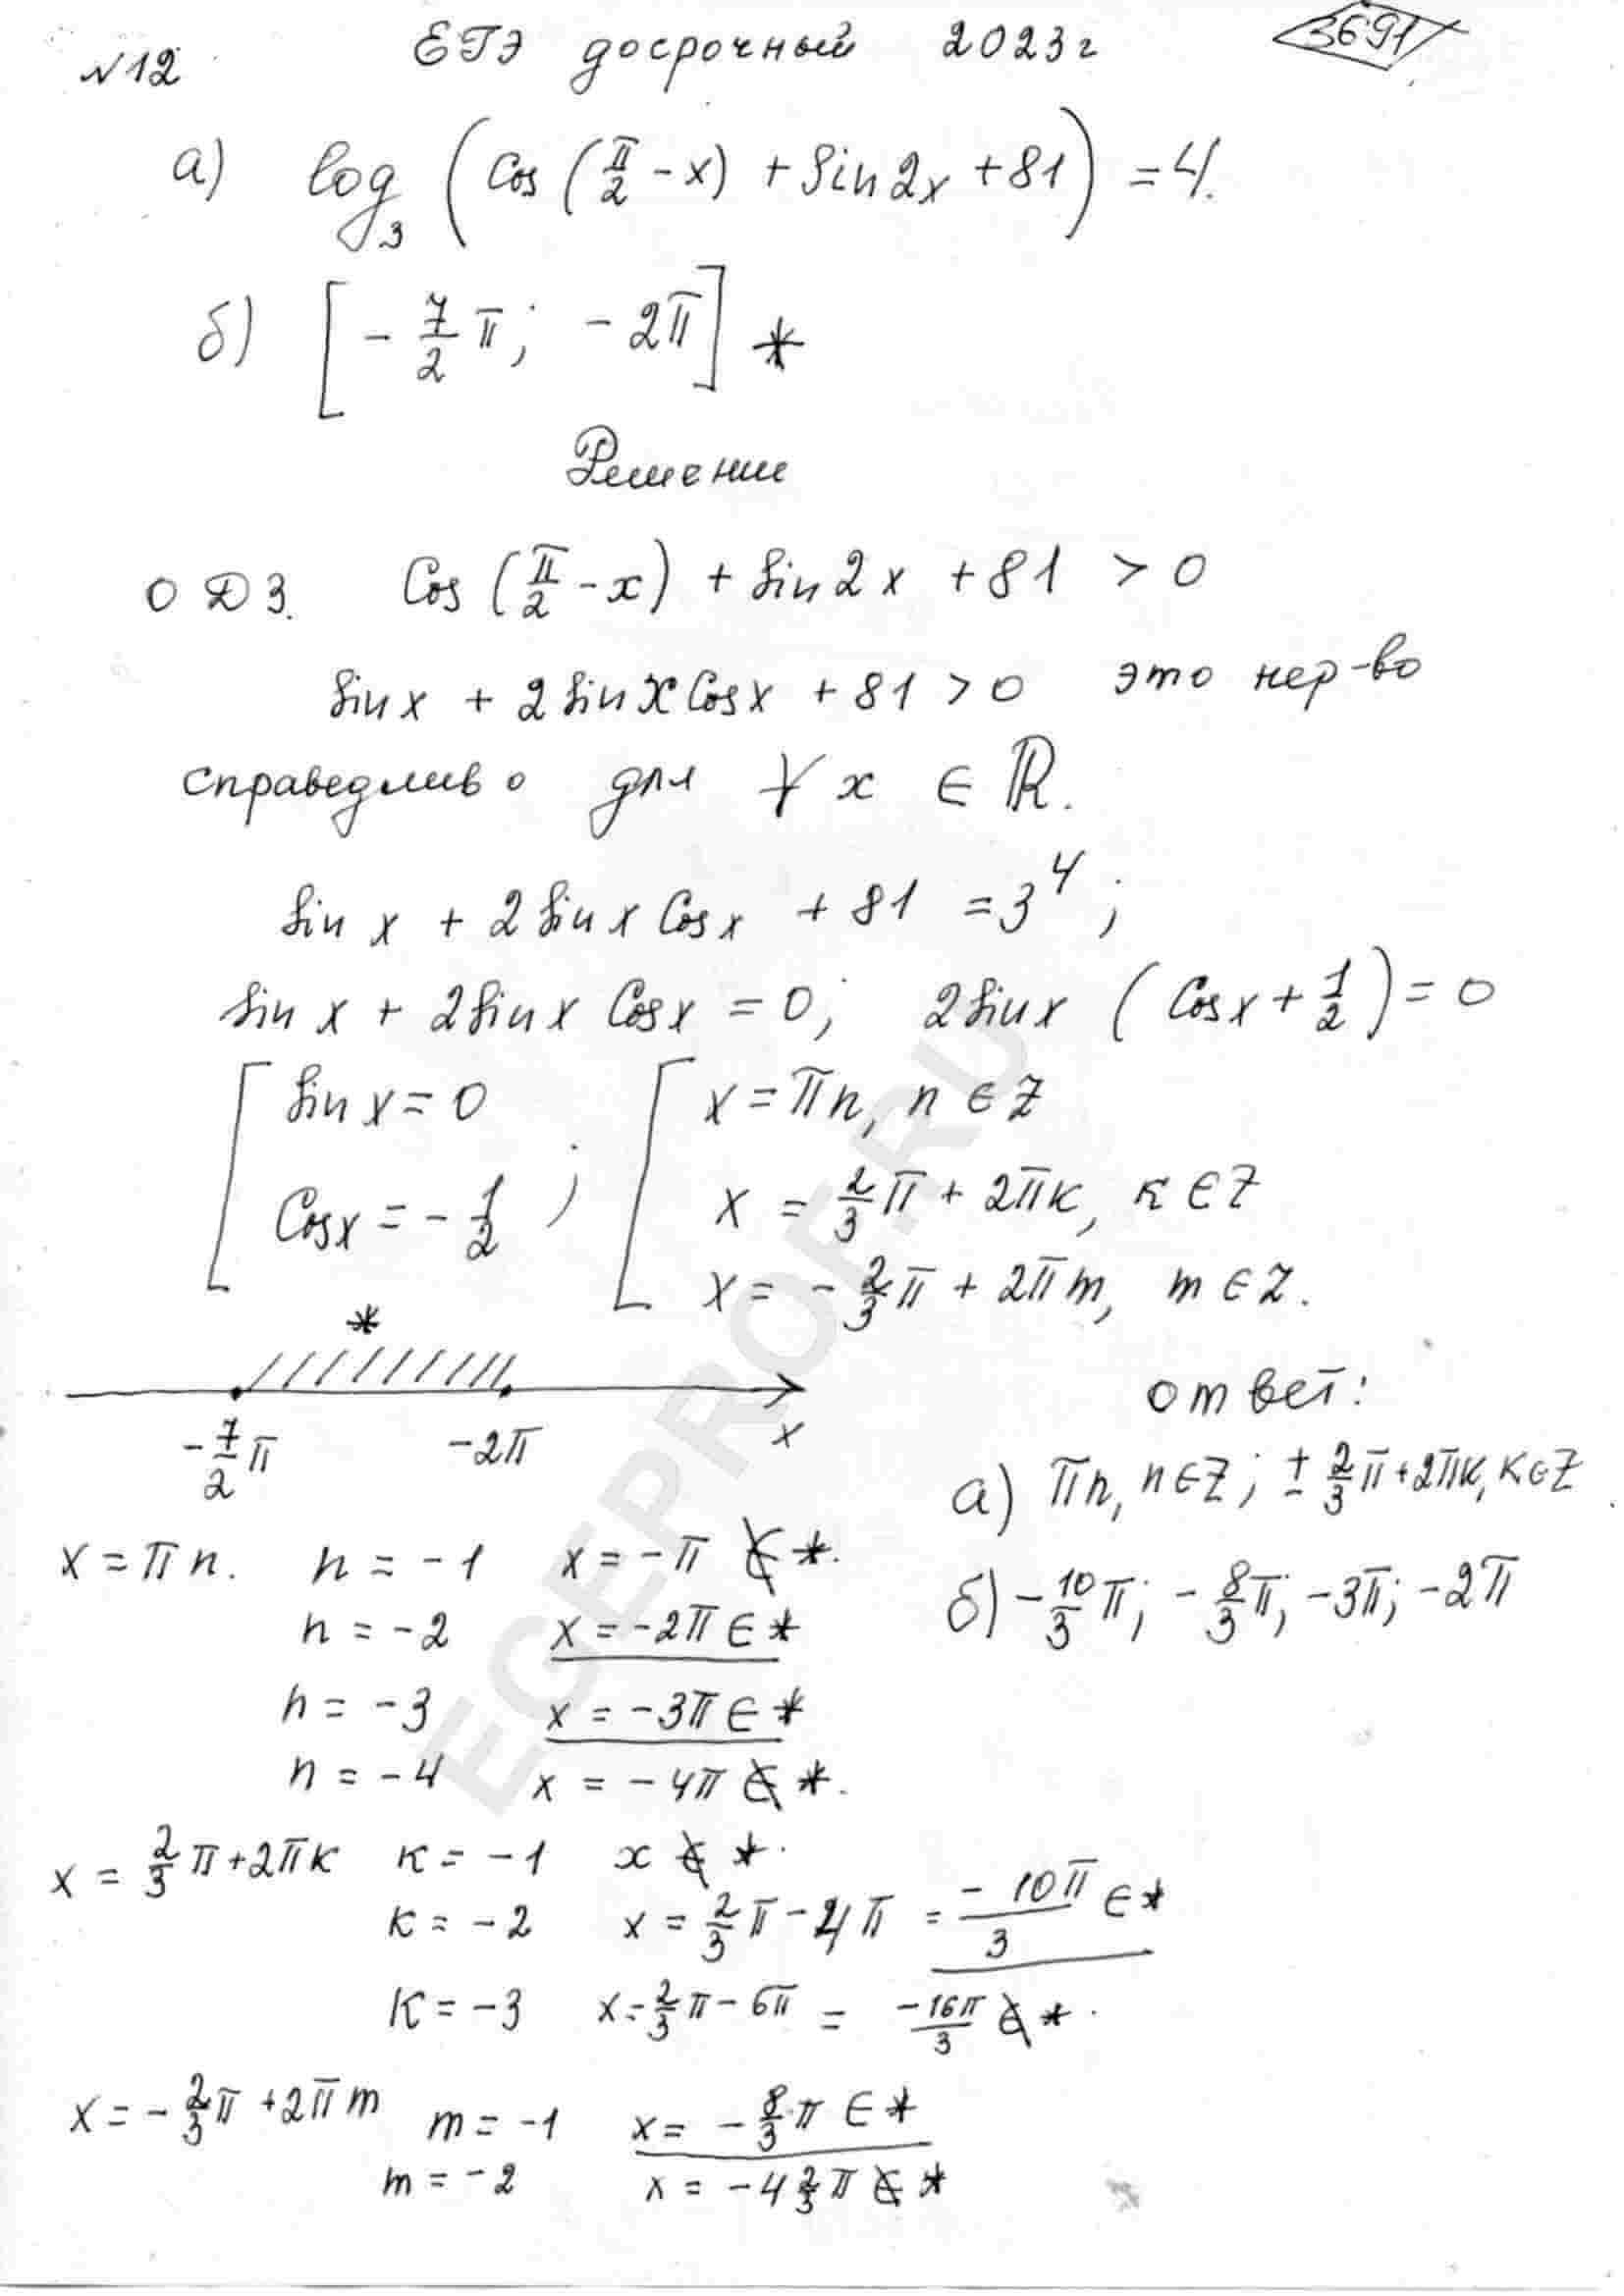 ЕГЭ досрочный 2023г
3691
№12
а) log₃ (Cos(π/2 - x) + Sin2x + 81) = 4.
б) [-7/2 π; -2π] *
Решение
ОДЗ. Cos(π/2 - x) + Sin2x + 81 > 0
Sinx + 2SinxCosx + 81 > 0 это нер-во
справедливо для ∀ x ∈ ℝ.
Sinx + 2SinxCosx + 81 = 3⁴;
Sinx + 2SinxCosx = 0; 2Sinx (Cosx + 1/2) = 0
[ Sinx = 0 [ x = πn, n ∈ Z
Cosx = -1/2 ; x = 2/3 π + 2πк, к ∈ Z
x = -2/3 π + 2πm, m ∈ Z.
*
-7/2 π -2π x
Ответ:
а) πn, n∈Z; ± 2/3 π + 2πк, к∈Z
б) -10/3 π; -8/3 π; -3π; -2π
x = πn. n = -1 x = -π ∉ *.
n = -2 x = -2π ∈ *
n = -3 x = -3π ∈ *
n = -4 x = -4π ∉ *.
x = 2/3 π + 2πк к = -1 x ∉ *.
к = -2 x = 2/3 π - 4π = -10π/3 ∈ *
к = -3 x = 2/3 π - 6π = -16π/3 ∉ *.
x = -2/3 π + 2πm m = -1 x = -8/3 π ∈ *
m = -2 x = -4 2/3 π ∉ *
EGEPROF.RU